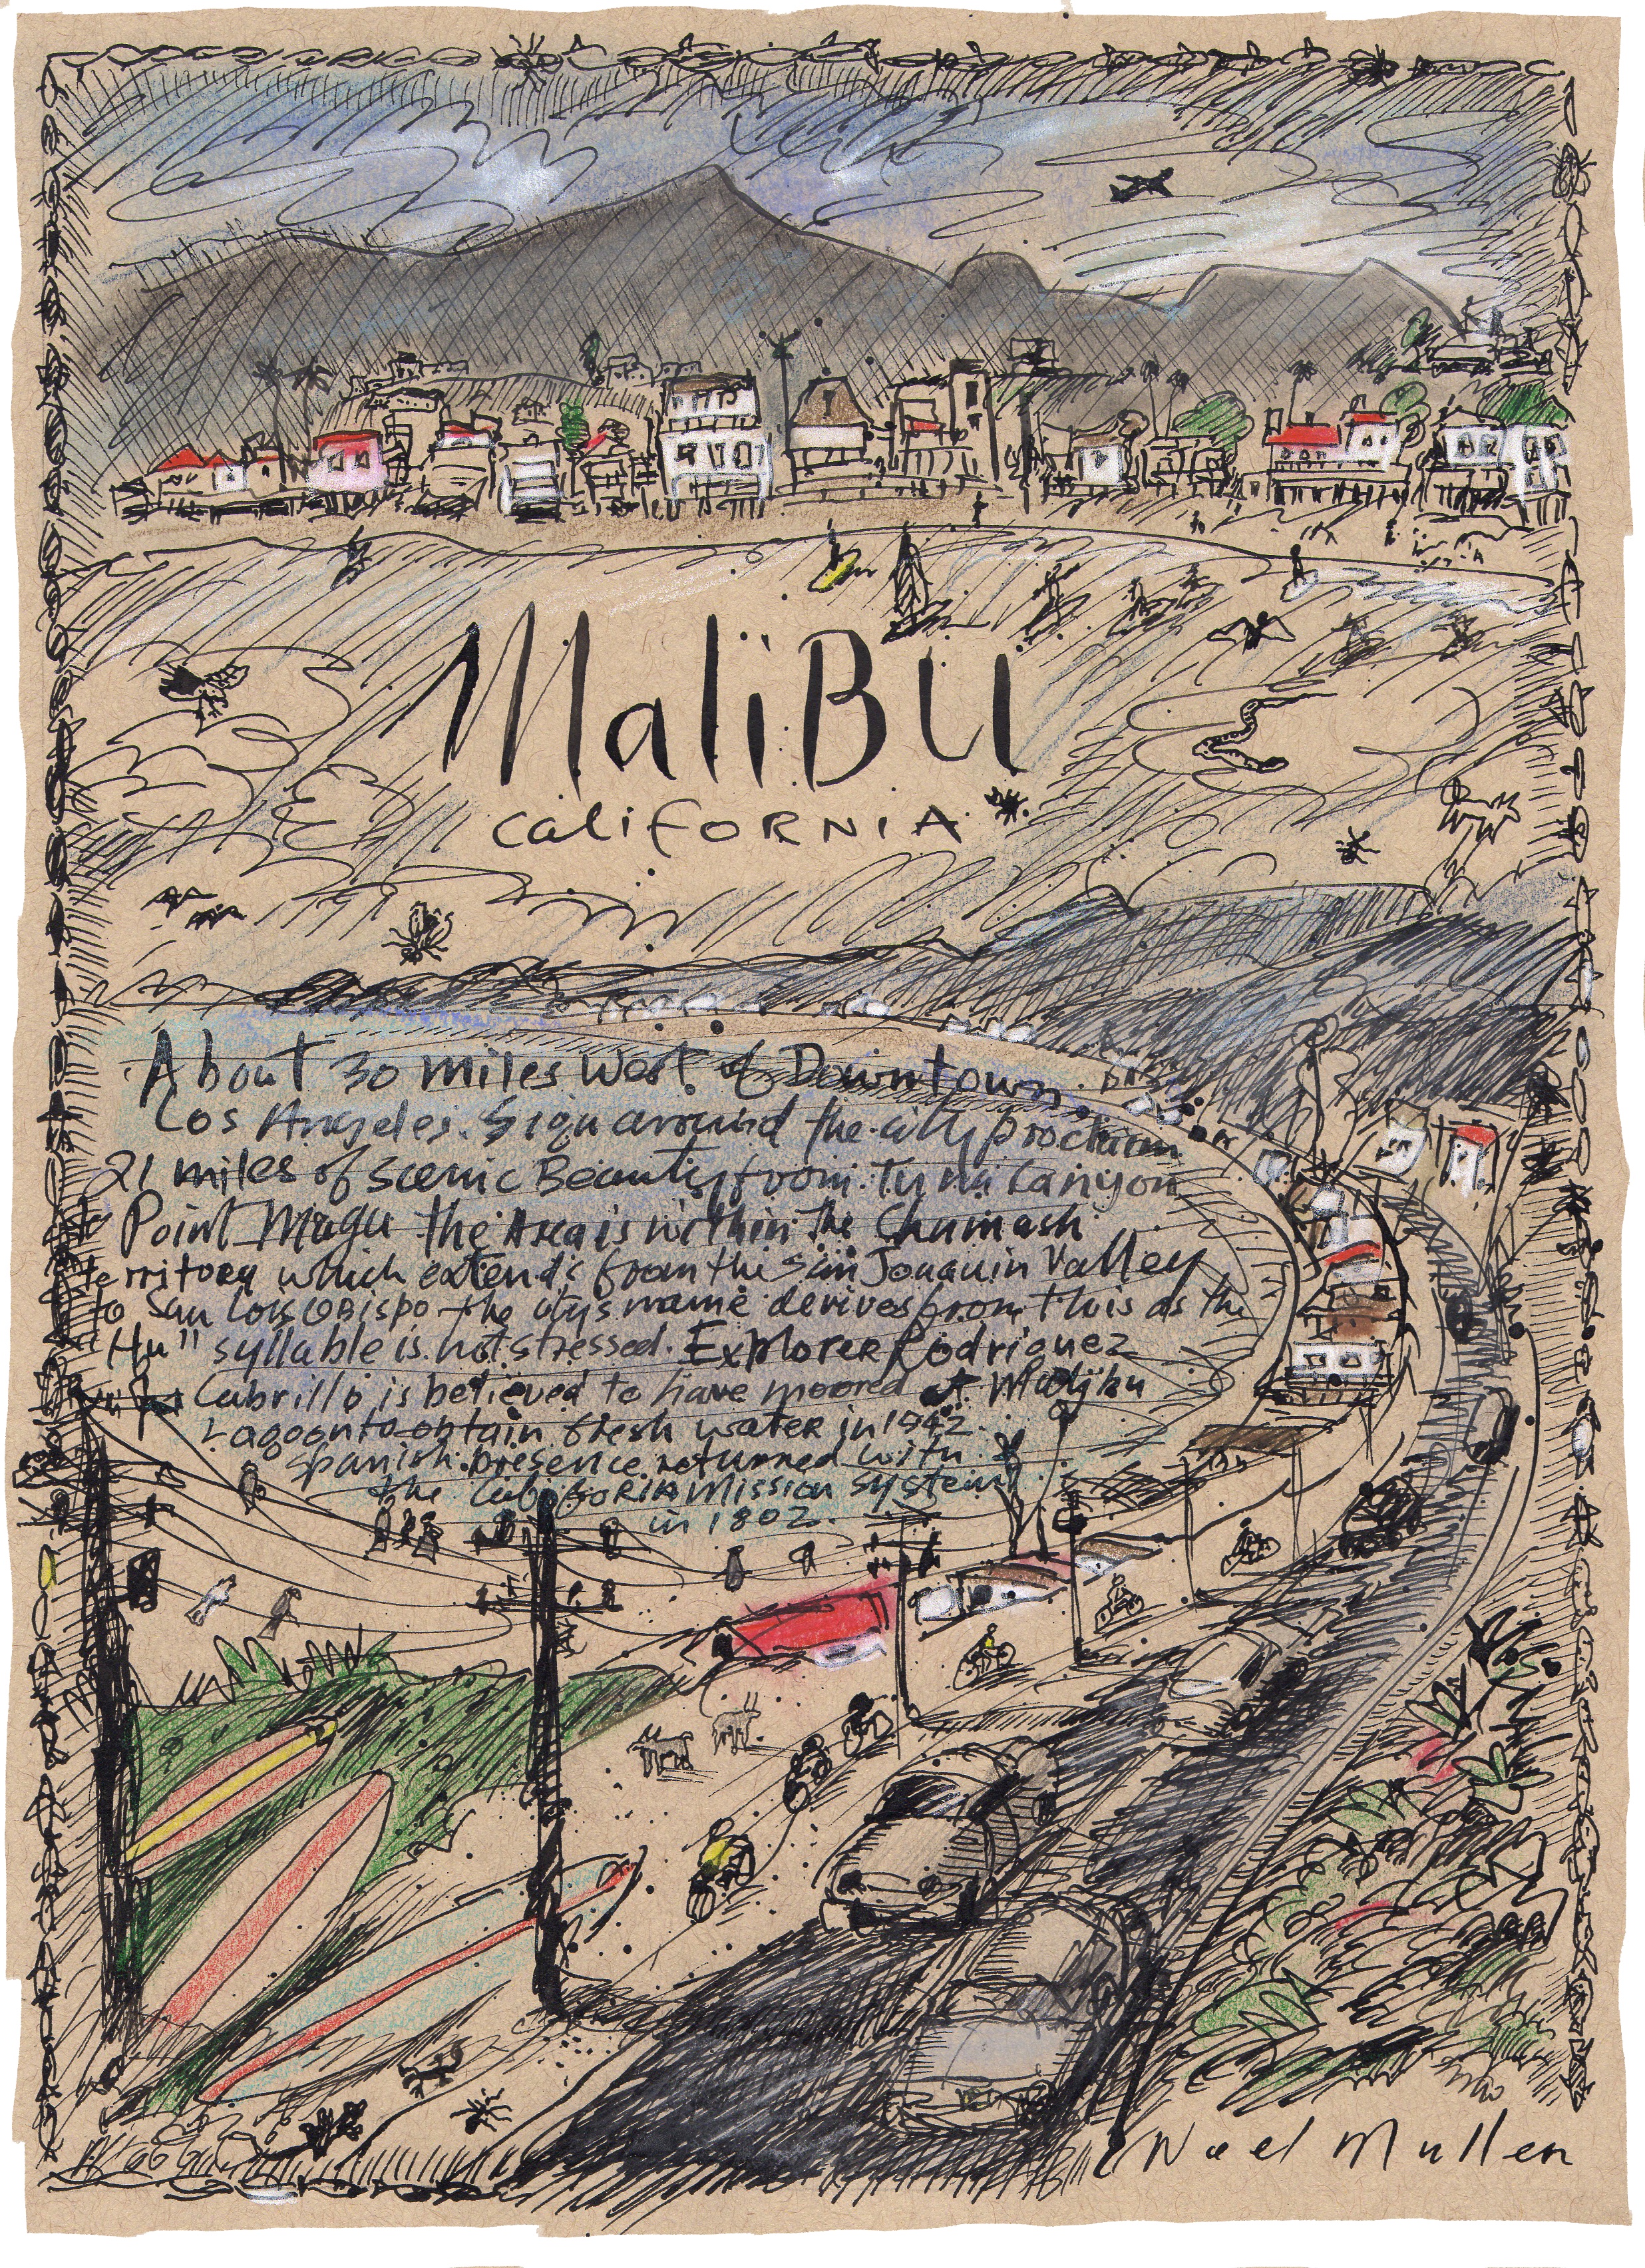 MaliBU
CaliFORNIA
About 30 miles West of Downtown
Los Angeles. Sign around the city proclaim
21 miles of scenic Beauty from Tuna Canyon
to Point Mugu the Area is within the Chumash
territory which extends from the San Joaquin Valley
to San Lois OBispo the citys name derives from this as the
"Hu" syllable is not stressed. Explorer Rodriguez
Cabrillo is believed to have moored at
Lagoon to obtain fresh water in 1942
Spanish presence returned with
the California Mission System
in 1802.
Noel Mullen